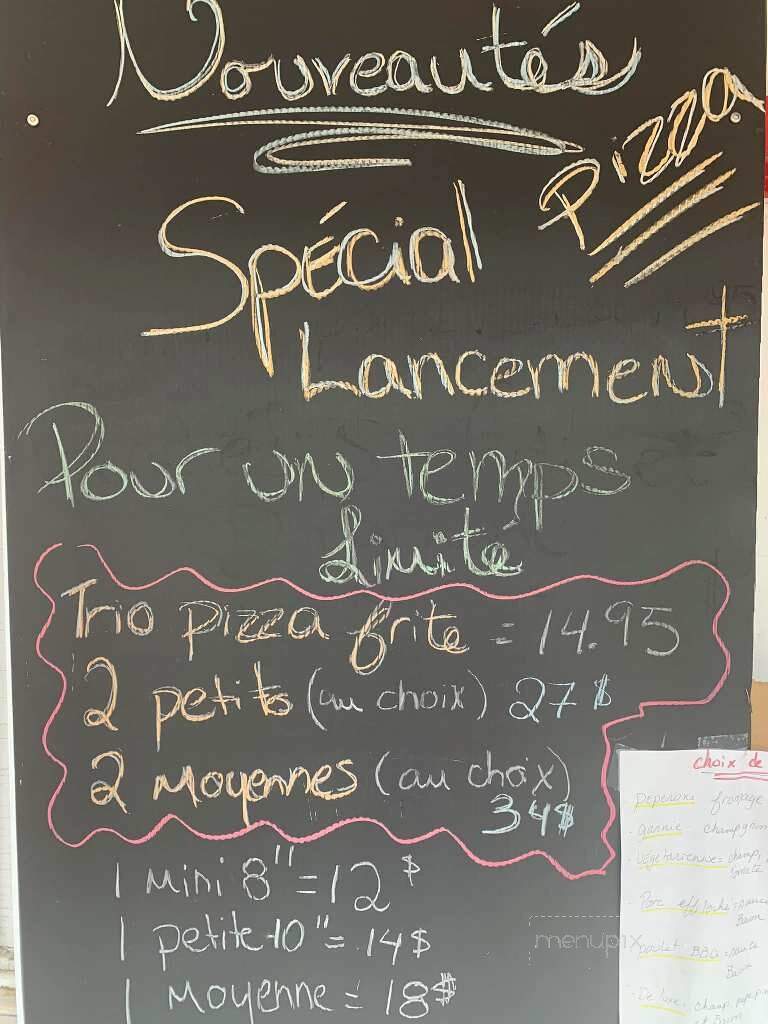 Nouveautés
Pizza
Spécial
Lancement
Pour un temps
Limité
Trio pizza frite = 14.95
2 petits (au choix) 27$
2 Moyennes (au choix)
34$
1 Mini 8" = 12$
1 petite 10" = 14$
1 Moyenne = 18$
choix de
peperoni fromage
garnie champignon
végétarienne = champ,
Porc effiloché =
Poulet BBQ =
De luxe champ.
menupix